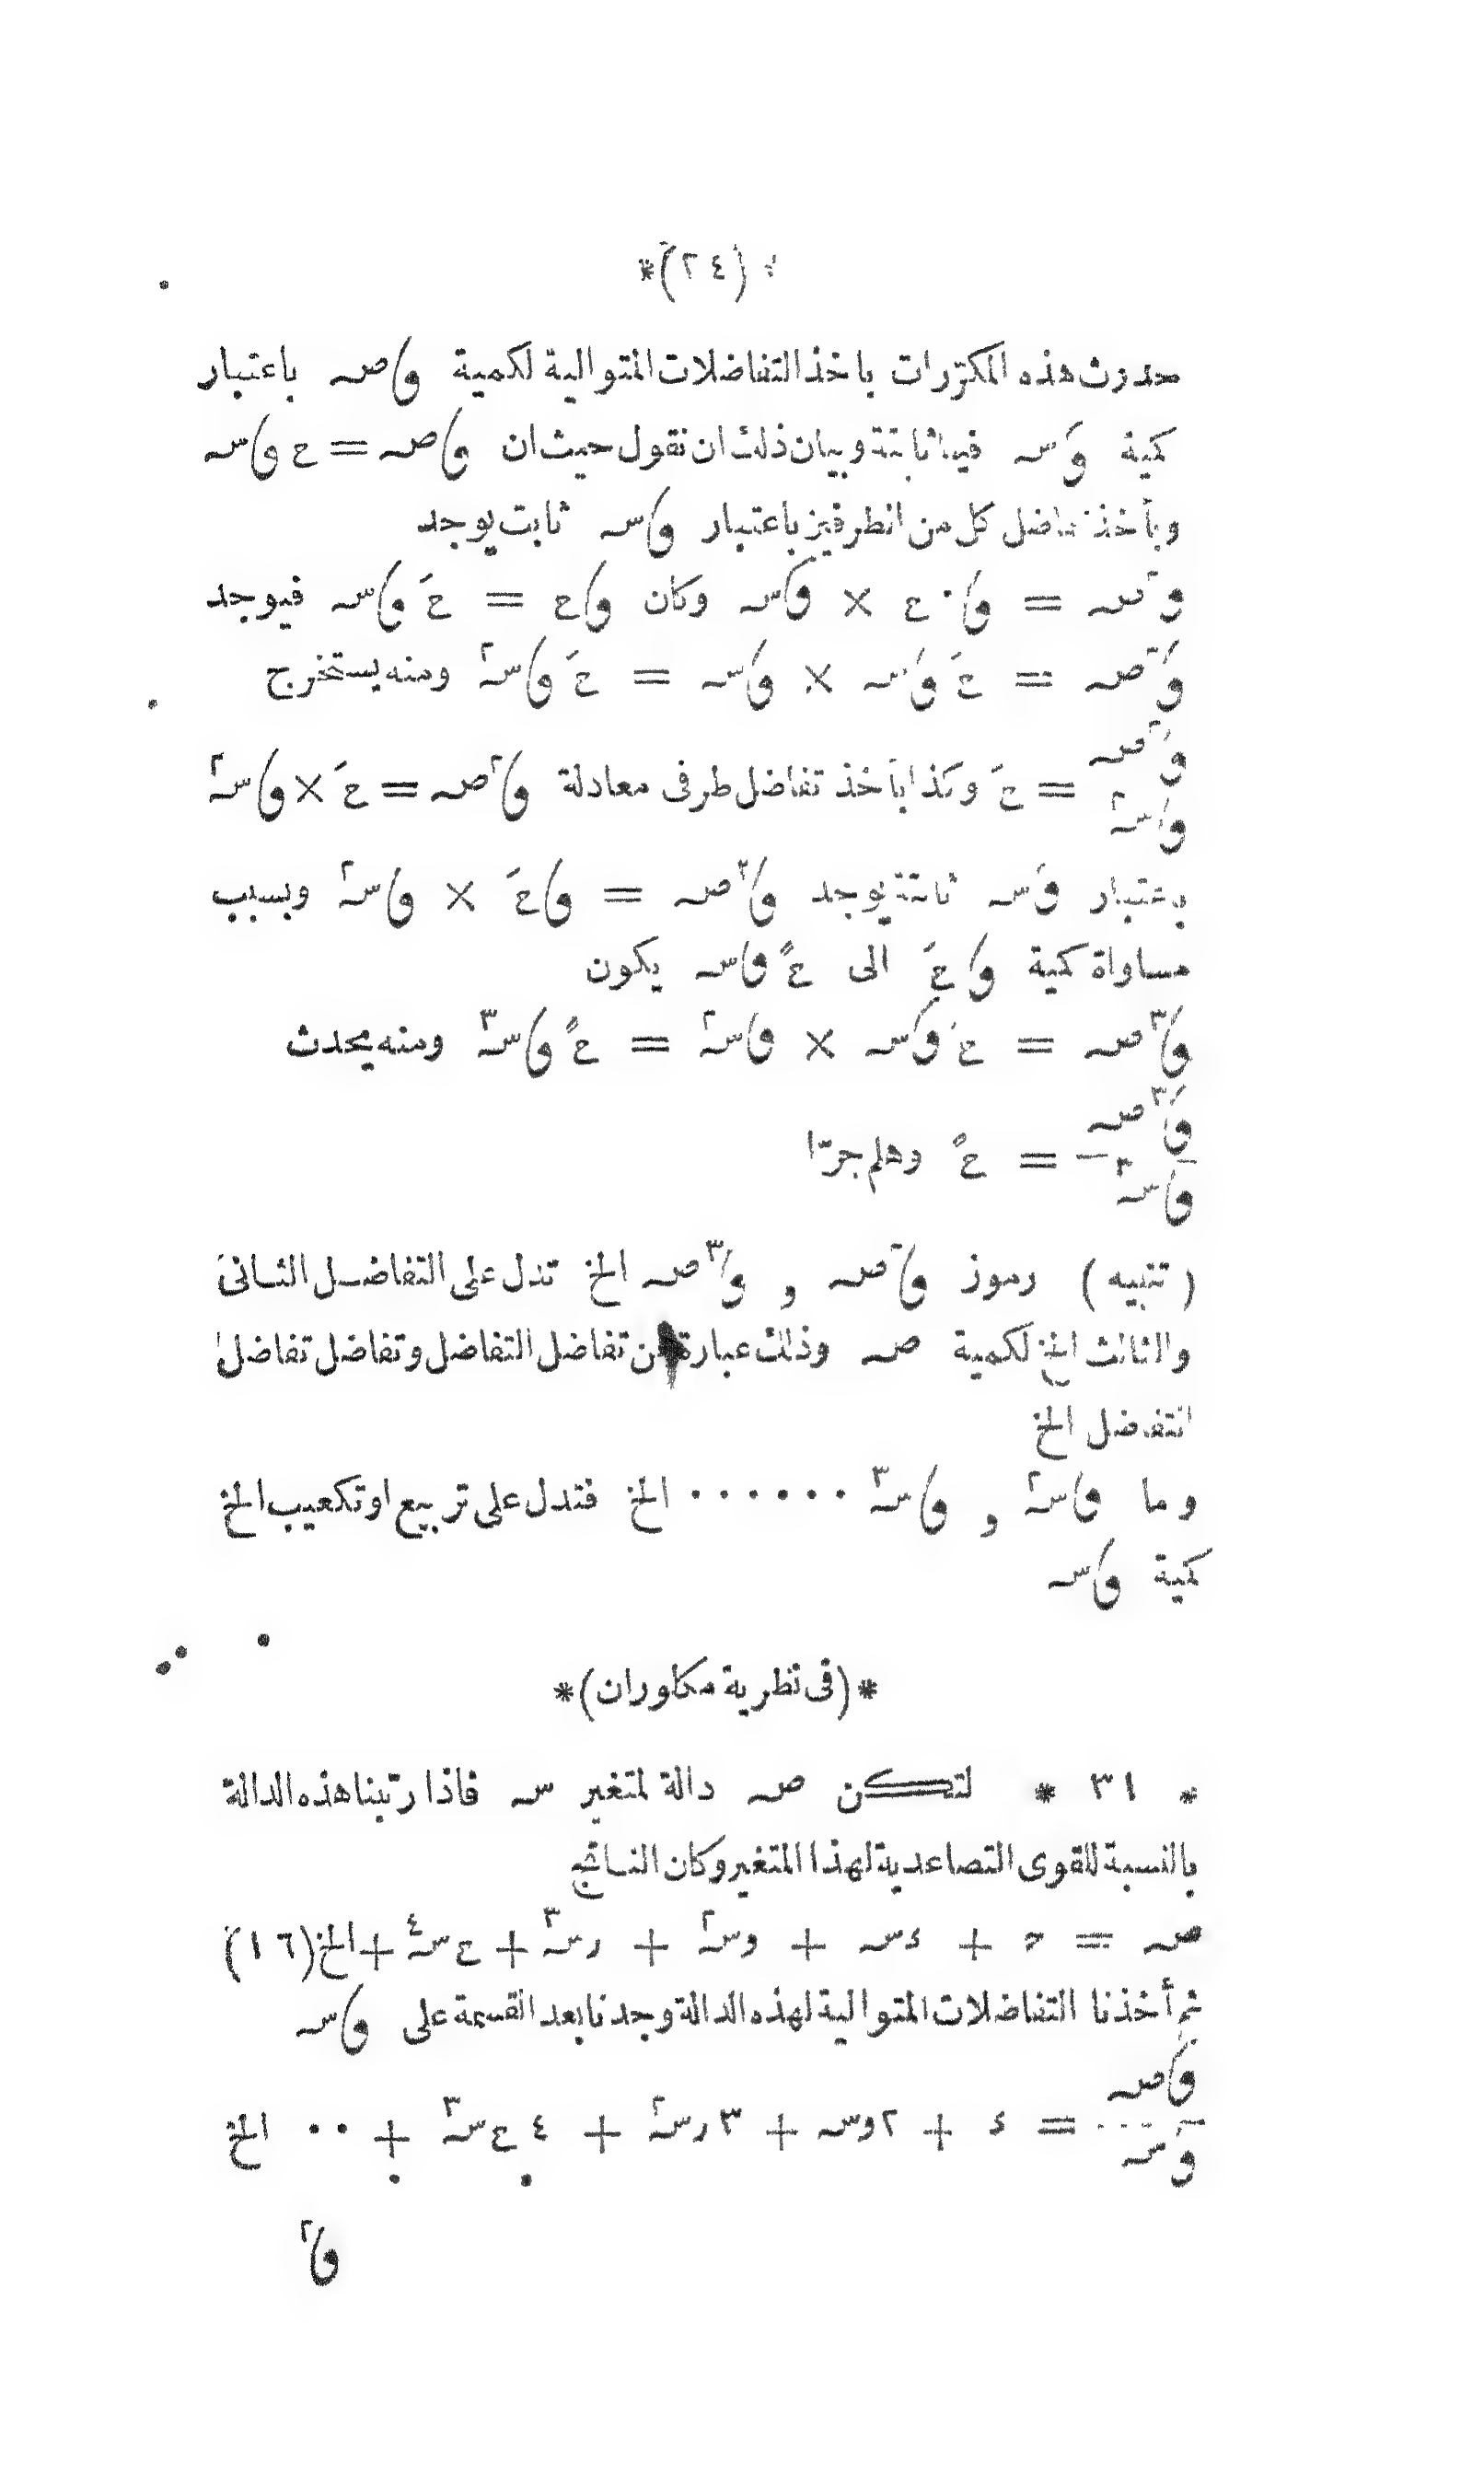 *(٢٤)*
حدوث هذه المكرّرات باخذ التفاضلات المتوالية لكمية وٰصہ باعتبار
كمية وٰسہ فيها ثابتة وبيان ذلك ان نقول حيث ان وٰصہ = ع وٰسہ
وبأخذ تفاضل كل من الطرفين باعتبار وٰسہ ثابت يوجد
وٰ٢صہ = وٰ.ع × وٰسہ وكان وٰع = عَ وٰسہ فيوجد
وٰ٢صہ = عَ وٰسہ × وٰسہ = عَ وٰسہ٢ ومنه يستخرج
وٰ٢صہ / وٰسہ٢ = عَ وكذا بأخذ تفاضل طرفى معادلة وٰ٢صہ = عَ × وٰسہ٢
باعتبار وٰسہ ثابتة يوجد وٰ٣صہ = وٰعَ × وٰسہ٢ وبسبب
مساواة كمية وٰعَ الى عً وٰسہ يكون
وٰ٣صہ = عً وٰسہ × وٰسہ٢ = عً وٰسہ٣ ومنه يحدث
وٰ٣صہ / وٰسہ٣ = عً وهلم جرّا
(تنبيه) رموز وٰ٢صہ و وٰ٣صہ الخ تدل على التفاضــل الثـانى
والثالث الخ لكمية صہ وذلك عبارة عن تفاضل التفاضل وتفاضل تفاضل
التفاضل الخ
وما وٰسہ٢ و وٰسہ٣ ...... الخ فتدل على تربيع او تكعيب الخ
كمية وٰسہ
*(فى نظرية مكلوران)*
* ٣١ * لتكـن صہ دالة لمتغير سہ فاذا رتبنا هذه الدالة
بالنسبة للقوى التصاعدية لهذا المتغير وكان النـاتج
صہ = ح + ءسہ + وسہ٢ + رسہ٣ + ع سہ٤ + الخ (١٦)
ثم أخذنا التفاضلات المتوالية لهذه الدالة وجدنا بعد القسمة على وٰسہ
وٰصہ / وٰسہ = ء + ٢وسہ + ٣رسہ٢ + ٤ع سہ٣ + .. الخ
وٰ٢